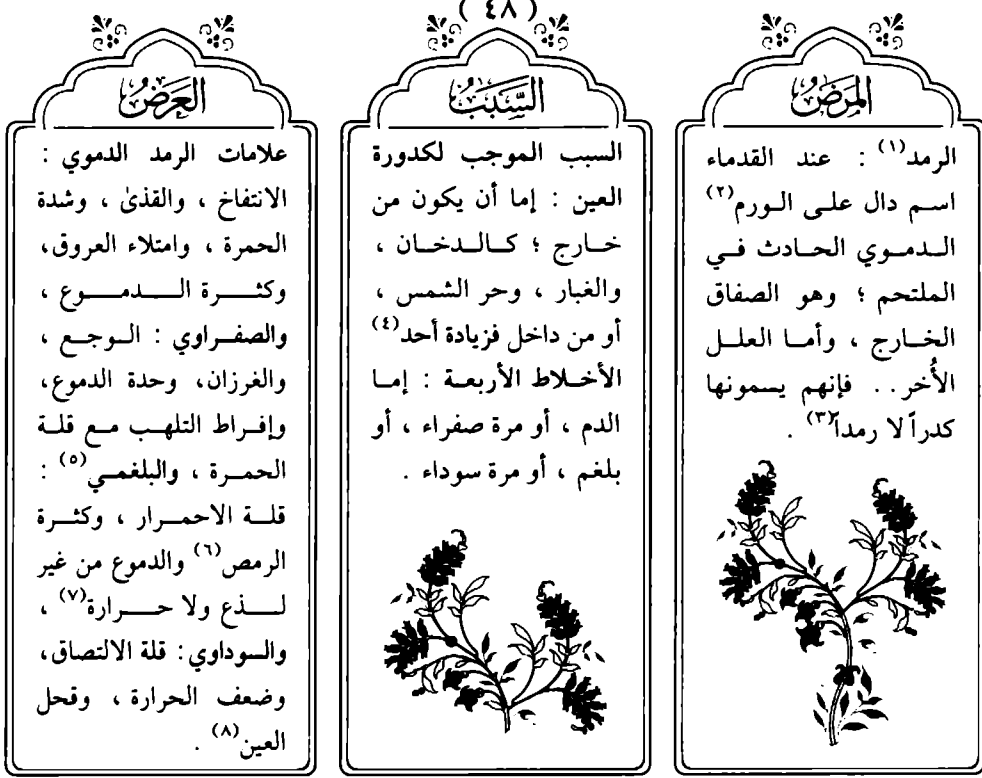 ( ٤٨ )
المَرَضُ
الرمد(١) : عند القدماء
اسم دال على الورم(٢)
الدموي الحادث في
الملتحم ؛ وهو الصفاق
الخارج ، وأما العلل
الأُخر . . فإنهم يسمونها
كدراً لا رمداً(٣) .
السَّبَبُ
السبب الموجب لكدورة
العين : إما أن يكون من
خارج ؛ كالدخان ،
والغبار ، وحر الشمس ،
أو من داخل فزيادة أحد(٤)
الأخلاط الأربعة : إما
الدم ، أو مرة صفراء ، أو
بلغم ، أو مرة سوداء .
العَرَضُ
علامات الرمد الدموي :
الانتفاخ ، والقذىٰ ، وشدة
الحمرة ، وامتلاء العروق،
وكثرة الدموع ،
والصفراوي : الوجع ،
والغرزان، وحدة الدموع،
وإفراط التلهب مع قلة
الحمرة ، والبلغمي(٥) :
قلة الاحمرار ، وكثرة
الرمص(٦) والدموع من غير
لذع ولا حرارة(٧) ،
والسوداوي : قلة الالتصاق،
وضعف الحرارة ، وقحل
العين(٨) .